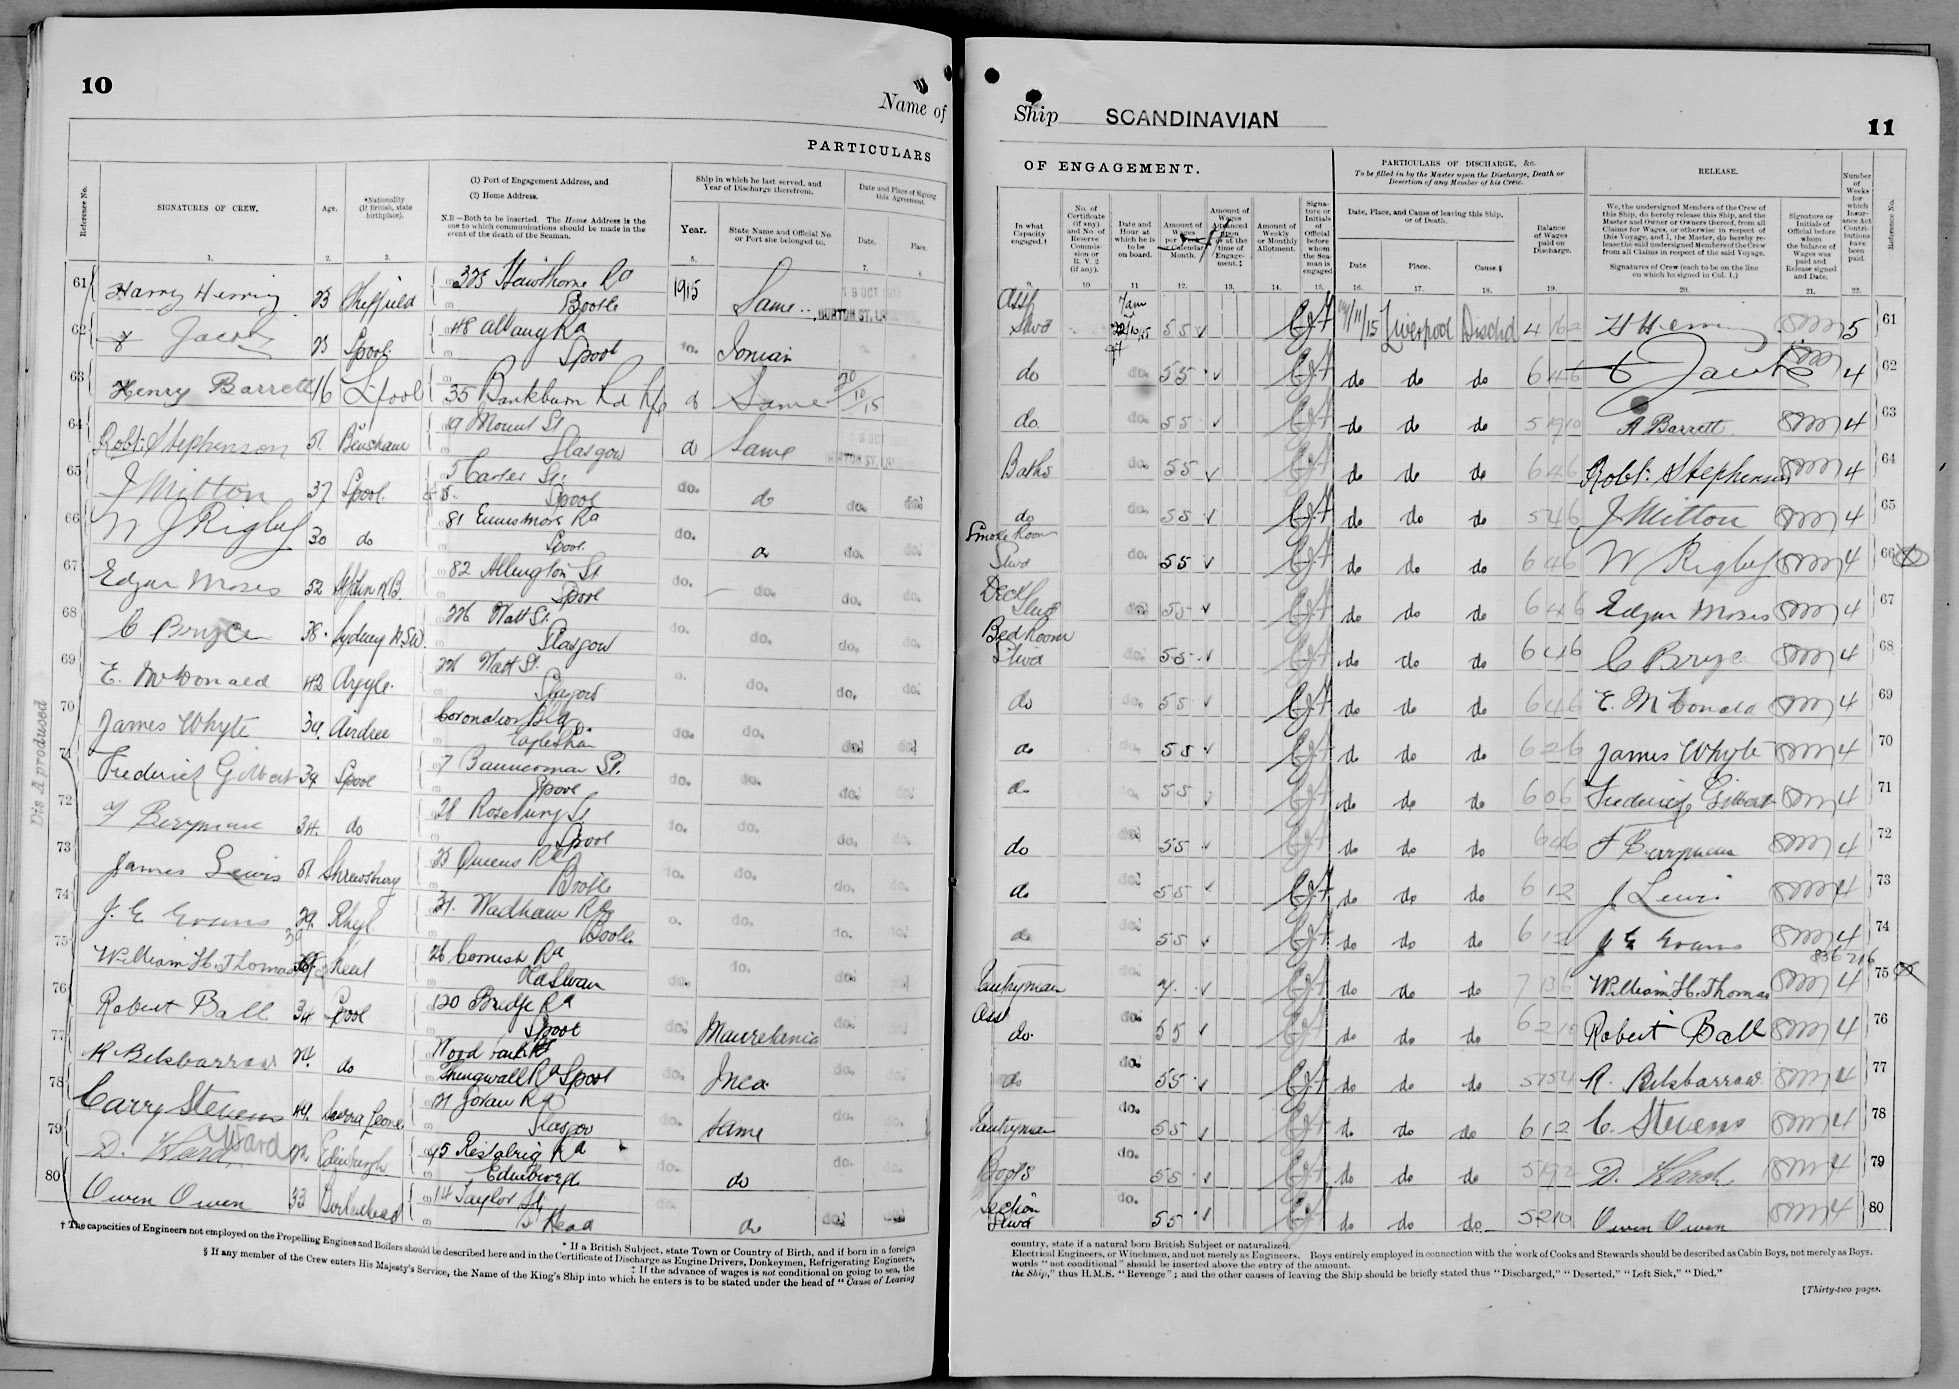 10
Name of
PARTICULARS
Reference No.
SIGNATURES OF CREW.
Age.
*Nationality (If British, state birthplace).
(1) Port of Engagement Address, and
(2) Home Address.
N.B.—Both to be inserted. The Home Address is the one to which communications should be made in the event of the death of the Seaman.
Ship in which he last served, and Year of Discharge therefrom.
Year.
State Name and Official No. or Port she belonged to.
Date and Place of Signing this Agreement.
Date.
Place.
61 Harry Herring 23 Sheffield 325 Hawthorne Rd Bootle 1915 Same
62 Jacobs 23 Lpool 48 Albany Rd Lpool do. Ionian
63 Henry Barrett 16 L'pool 35 Bankburn Rd do Same 20/10/15
64 Robt: Stephenson 51 Bensham 9 Mount St Glasgow do Same
65 J Mitton 37 Lpool 5 Carter St. Lpool do. do do. do.
66 W J Rigby 30 do 81 Ennismore Rd Lpool do. do do. do.
67 Edgar Moses 52 82 Allington St Lpool do. do. do. do.
68 C Bryce 38 Sydney NSW. 226 Watt St. Glasgow do. do. do. do.
69 E. McDonald 42 Argyle. 226 Watt St. Glasgow do. do. do.
70 James Whyte 39 Airdrie Coronation Bldg Eaglesham do. do. do. do.
71 Frederick Gilbert 39 Lpool 7 Bannerman St. Lpool do. do. do. do.
72 F Berryman 34. do 28 Rosebury St Lpool do. do. do. do.
73 James Lewis 51. Shrewsbury 23 Queens Rd Bootle do. do. do. do.
74 J. E Evans 29. Rhyl 31. Wadham Rd Bootle do. do. do.
75 William H. Thomas 26 Cornish Rd do. do. do. do.
76 Robert Ball 34 Lpool 120 Bridge Rd Lpool do. Mauretania do. do.
77 R Bilsbarrow 24. do Thingwall Rd Lpool do. Inca do. do.
78 Carry Stevens 49. Sierra Leone 21 Govan Rd Glasgow do. Same do. do.
79 D. Ward Ward 22 Edinburgh 95 Restalrig Rd Edinburgh do. do do. do.
80 Owen Owen 33 Birkenhead 14 Taylor St B'Head do. do do. do.
Dis A produced
* If a British Subject, state Town or Country of Birth, and if born in a foreign
† The capacities of Engineers not employed on the Propelling Engines and Boilers should be described here and in the Certificate of Discharge as Engine Drivers, Donkeymen, Refrigerating Engineers,
‡ If the advance of wages is not conditional on going to sea, the
§ If any member of the Crew enters His Majesty's Service, the Name of the King's Ship into which he enters is to be stated under the head of "Cause of Leaving
Ship SCANDINAVIAN
11
OF ENGAGEMENT.
PARTICULARS OF DISCHARGE, &c.
To be filled in by the Master upon the Discharge, Death or Desertion of any Member of his Crew.
RELEASE.
Number of Weeks for which Insurance Act Contributions have been paid.
Reference No.
In what Capacity engaged.†
No. of Certificate (if any) and No. of Reserve Commission or R.V.2 (if any).
Date and Hour at which he is to be on board.
Amount of Wages per Calendar Month.
Amount of Wages Advanced upon or at the time of Engagement.‡
Amount of Weekly or Monthly Allotment.
Signature or Initials of Official before whom the Seaman is engaged
Date, Place, and Cause of leaving this Ship, or of Death.
Date.
Place.
Cause.§
Balance of Wages paid on Discharge.
We, the undersigned Members of the Crew of this Ship, do hereby release this Ship, and the Master and Owner or Owners thereof, from all Claims for Wages, or otherwise in respect of this Voyage, and I, the Master, do hereby release the said undersigned Members of the Crew from all Claims in respect of the said Voyage.
Signatures of Crew (each to be on the line on which he signed in Col. 1.)
Signature or Initials of Official before whom the balance of Wages was paid and Release signed and Date.
9. 10. 11. 12. 13. 14. 15. 16. 17. 18. 19. 20. 21. 22.
Asst Stwd 7am 22/10/15 55 14/11/15 Liverpool Dischd 4 16 2 H Herring 5 61
do do. 55 do do do 6 4 6 Jacobs 4 62
do. do. 55 do do do 5 19 10 H Barrett 4 63
Baths do. 55 do do do 6 4 6 Robt: Stephenson 4 64
do do. 55 do do do 5 4 6 J Mitton 4 65
Smoke Room Stwd do. 55 do do do 6 4 6 W Rigby 4 66
Deck Stwd do. 55 do do do 6 4 6 Edgar Moses 4 67
Bed Room Stwd do. 55 do do do 6 4 6 C Bryce 4 68
do do. 55 do do do 6 4 6 E. McDonald 4 69
do do. 55 do do do 6 2 6 James Whyte 4 70
do do. 55 do do do 6 0 6 Frederick Gilbert 4 71
do do. 55 do do do 6 4 6 F Berryman 4 72
do do. 55 do do do 6 1 2 J Lewis 4 73
do do. 55 do do do 6 1 2 J E Evans 4 74
Pantryman do do do 7 13 6 William H. Thomas 4 75
Asst do. do. 55 do do do 6 2 10 Robert Ball 4 76
do do. 55 do do do 5 15 4 R. Bilsbarrow 4 77
Pantryman do. 55 do do do 6 1 2 C. Stevens 4 78
Boots do. 55 do do do 5 19 2 D. Ward 4 79
Section Stwd do. 55 do do do 5 2 10 Owen Owen 4 80
country, state if a natural born British Subject or naturalized.
Electrical Engineers, or Winchmen, and not merely as Engineers. Boys entirely employed in connection with the work of Cooks and Stewards should be described as Cabin Boys, not merely as Boys.
words "not conditional" should be inserted above the entry of the amount.
the Ship," thus H.M.S. "Revenge"; and the other causes of leaving the Ship should be briefly stated thus "Discharged," "Deserted," "Left Sick," "Died."
[Thirty-two pages.